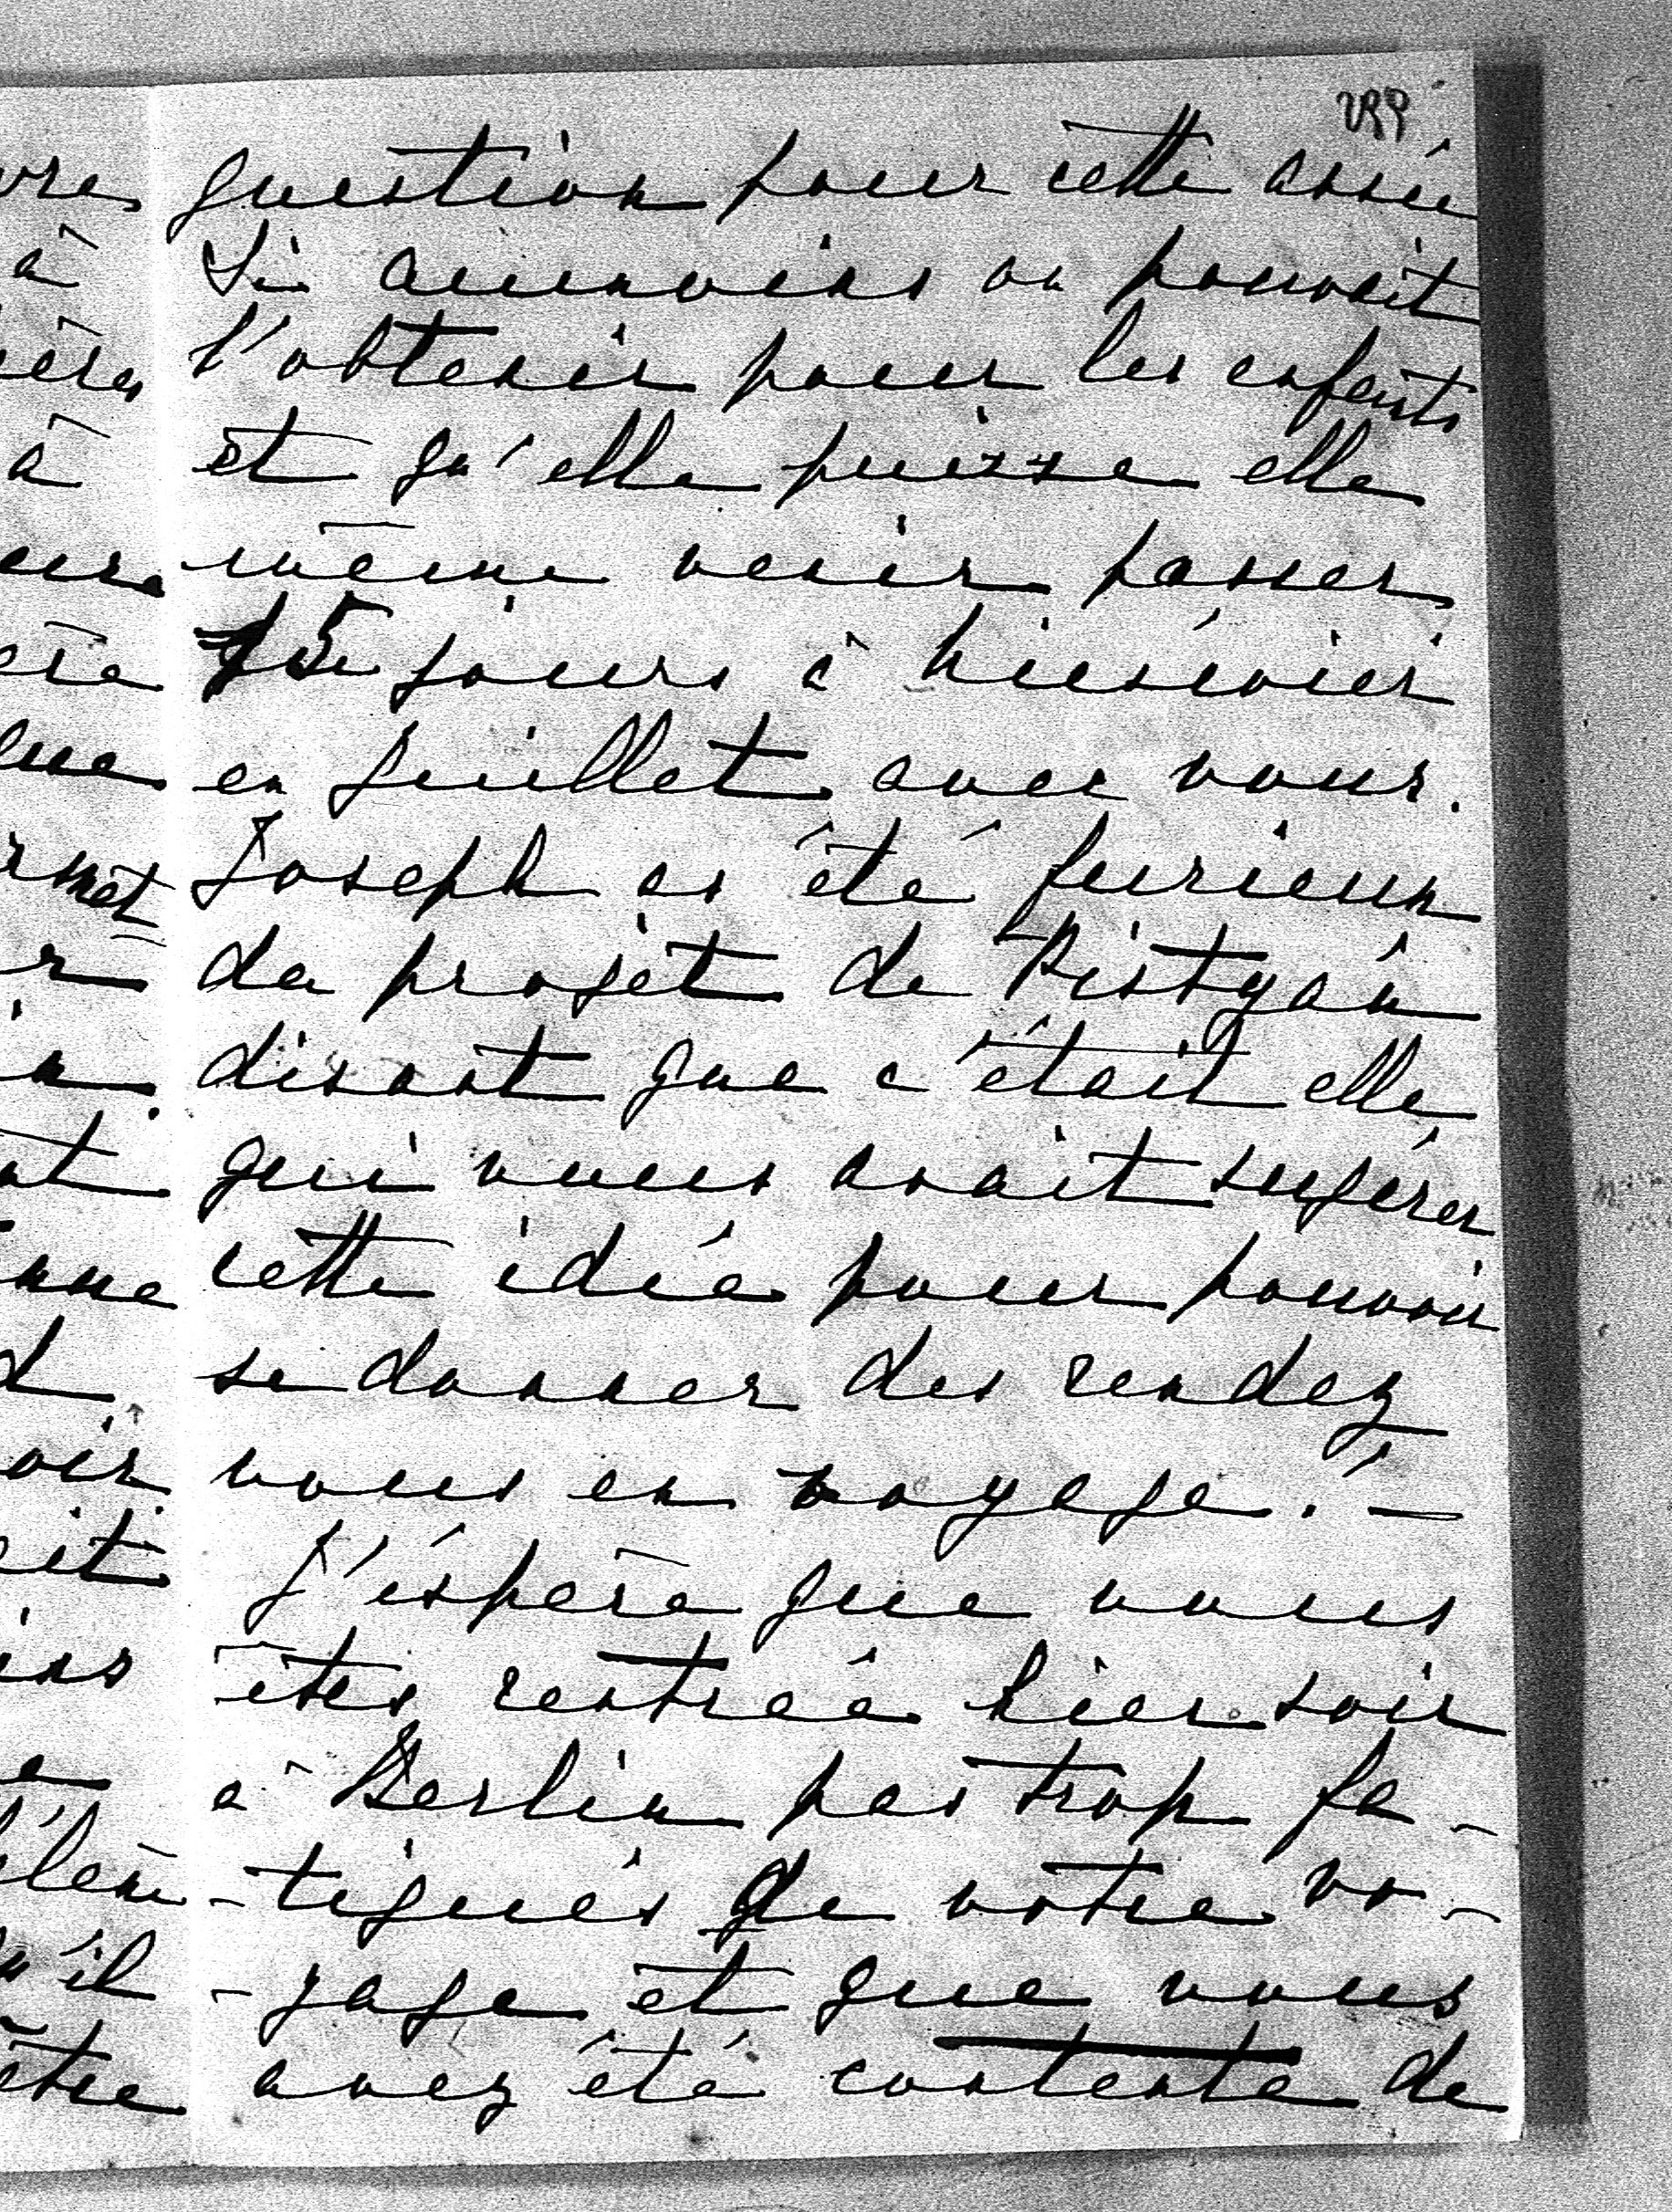 question pour cette année
Si aumoins on pouvait
l'obtenir pour les enfants
et qu'elle puisse elle
même venir passer
15 jours à
en Juillet avec vous.
Joseph as été furieux
du projet de Pistyán
disant que c'était elle
qui vous avait sugérer
cette idée pour pouvoir
se donner des rendez
vous en voyage. —
J'éspère que vous
êtes rentrée hier soir
à Berlin pas trop fa-
-tiguées de votre vo-
-yage et que vous
avez été contente de